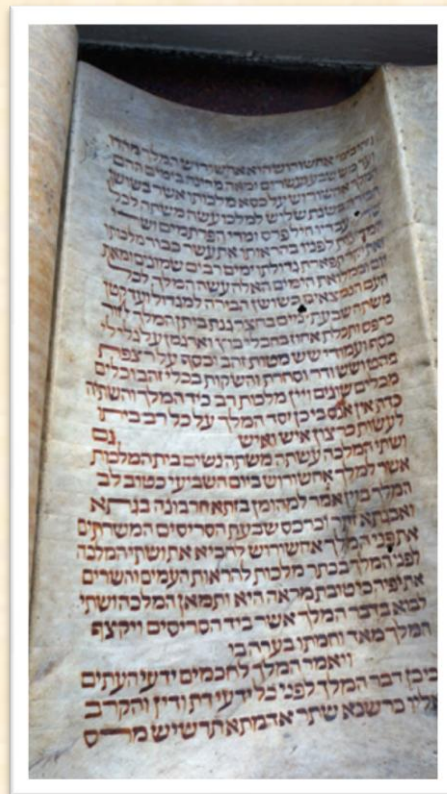 ויהי בימי אחשורוש הוא אחשורוש המלך מהדו
ועד כוש שבע ועשרים ומאה מדינה בימים ההם
המלך אחשורוש על כסא מלכותו אשר בשושן
בשנת שלוש למלכו עשה משתה לכל
ועבדיו חיל פרס ומדי הפרתמים
לפניו בהראתו את עשר כבוד מלכותו
ואת יקר תפארת גדולתו ימים רבים שמונים ומאת
יום ובמלואת הימים האלה עשה המלך לכל
העם הנמצאים בשושן הבירה למגדול ועד קטן
משתה שבעת ימים בחצר גנת ביתן המלך חור
כרפס ותכלת אחוז בחבלי בוץ וארגמן על גלילי
כסף ועמודי שש מטות זהב וכסף על רצפת
בהט ושש ודר וסחרת והשקות בכלי זהב וכלים
מכלים שונים ויין מלכות רב כיד המלך והשתיה
כדת אין אנס כי כן יסד המלך על כל רב ביתו
לעשות כרצון איש ואיש גם
ושתי המלכה עשתה משתה נשים בית המלכות
אשר למלך אחשורוש ביום השביעי כטוב לב
המלך ביין אמר למהומן בזתא חרבונא בגתא
ואבגתא זתר וכרכס שבעת הסריסים המשרתים
את פני המלך אחשורוש להביא את ושתי המלכה
לפני המלך בכתר מלכות להראות העמים והשרים
את יפיה כי טובת מראה היא ותמאן המלכה ושתי
לבוא בדבר המלך אשר ביד הסריסים ויקצף
המלך מאד וחמתו בערה בו
ויאמר המלך לחכמים ידעי העתים
כי כן דבר המלך לפני כל ידעי דת ודין והקרב
אליו כרשנא שתר אדמתא תרשיש מרס